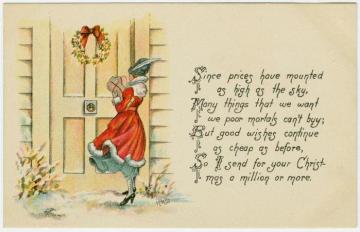 Since prices have mounted
as high as the sky,
Many things that we want
we poor mortals can't buy;
But good wishes continue
as cheap as before,
So I'll send for your Christ-
mas a million or more.